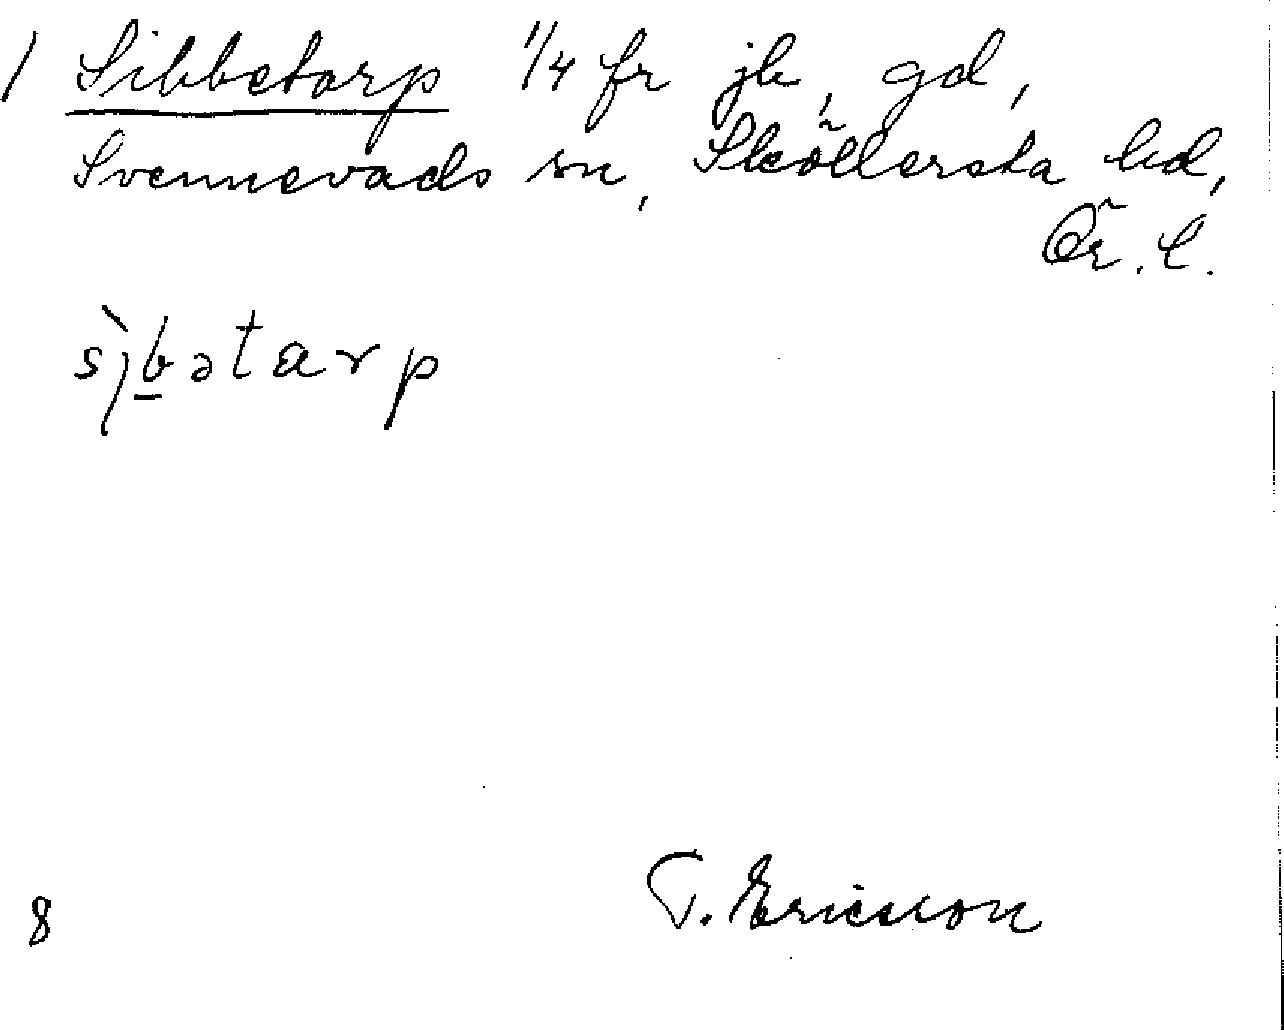 / Sibbetorp 1/4 fr jb, gd,
Svennevads sn, Sköllersta hd,
Ör. l.
sı̀b̲ətarp
T. Ericsson
8